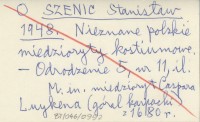 O SZENIC Stanisław
1948. Nieznane polskie
miedzioryty kostiumowe.
– Odrodzenie 5, w 11, il.
M. in. miedzioryt Caspra
Luykena (góral karpacki
z 1680 r.